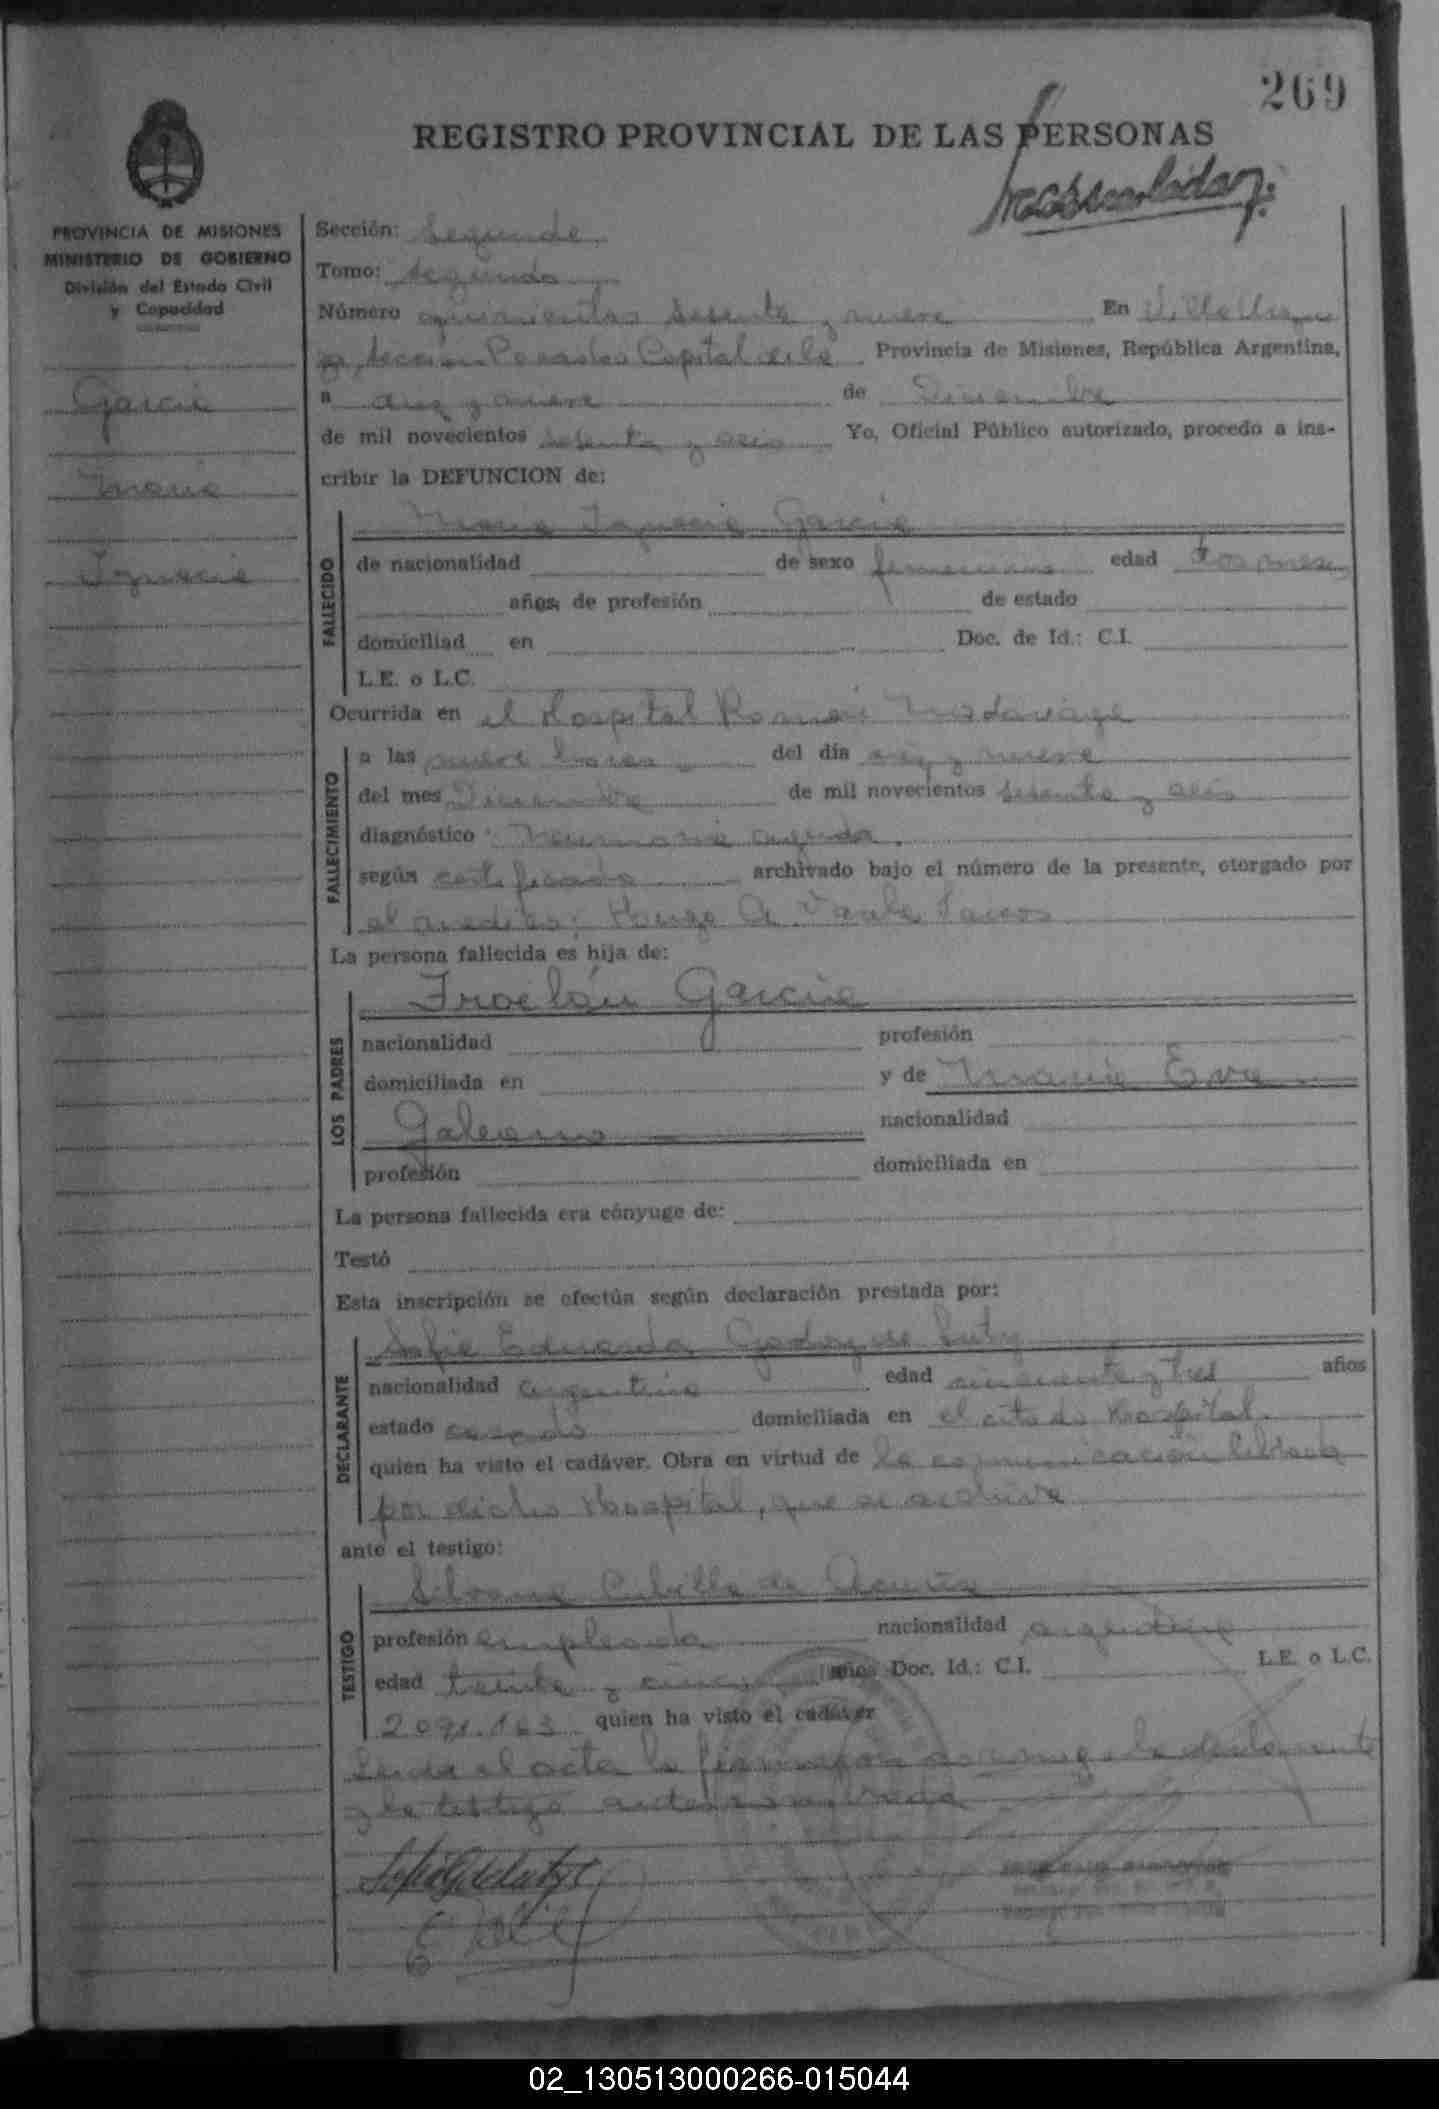 269
REGISTRO PROVINCIAL DE LAS PERSONAS
PROVINCIA DE MISIONES
MINISTERIO DE GOBIERNO
División del Estado Civil
y Capacidad
Garcia
Maria
Ignacia
Sección: Segunda
Tomo: Segundo
Número quinientos sesenta y nueve En Villa Urquiza
Sección Posadas Capital de la Provincia de Misiones, República Argentina,
a diez y nueve de Diciembre
de mil novecientos sesenta y seis Yo, Oficial Público autorizado, procedo a ins-
cribir la DEFUNCION de:
Maria Ignacia Garcia
FALLECIDO
de nacionalidad de sexo femenino edad dos meses
años; de profesión de estado
domiciliad en Doc. de Id.: C.I.
L.E. o L.C.
Ocurrida en el Hospital Ramón Madariaga
FALLECIMIENTO
a las nueve horas del día diez y nueve
del mes Diciembre de mil novecientos sesenta y seis
diagnóstico Neumonia aguda.
según certificado archivado bajo el número de la presente, otorgado por
el medico; Hugo A.
La persona fallecida es hija de:
LOS PADRES
Froelán Garcia
nacionalidad profesión
domiciliada en y de Maria Eva
Galeano nacionalidad
profesión domiciliada en
La persona fallecida era cónyuge de:
Testó
Esta inscripción se efectúa según declaración prestada por:
DECLARANTE
Sofia Eduarda Godoy de
nacionalidad argentina edad cincuenta y tres años
estado casada domiciliada en el citado Hospital.
quien ha visto el cadáver. Obra en virtud de la comunicación librada
por dicho Hospital, que se archiva
ante el testigo:
TESTIGO
Silvana Cubilla de Acuña
profesión empleada nacionalidad argentina
edad treinta y cinco años Doc. Id.: C.I. L.E. o L.C.
2.091.163 quien ha visto el cadáver
Leida el acta la firmaron conmigo la declarante
y la testigo antes nombrada
02_130513000266-015044